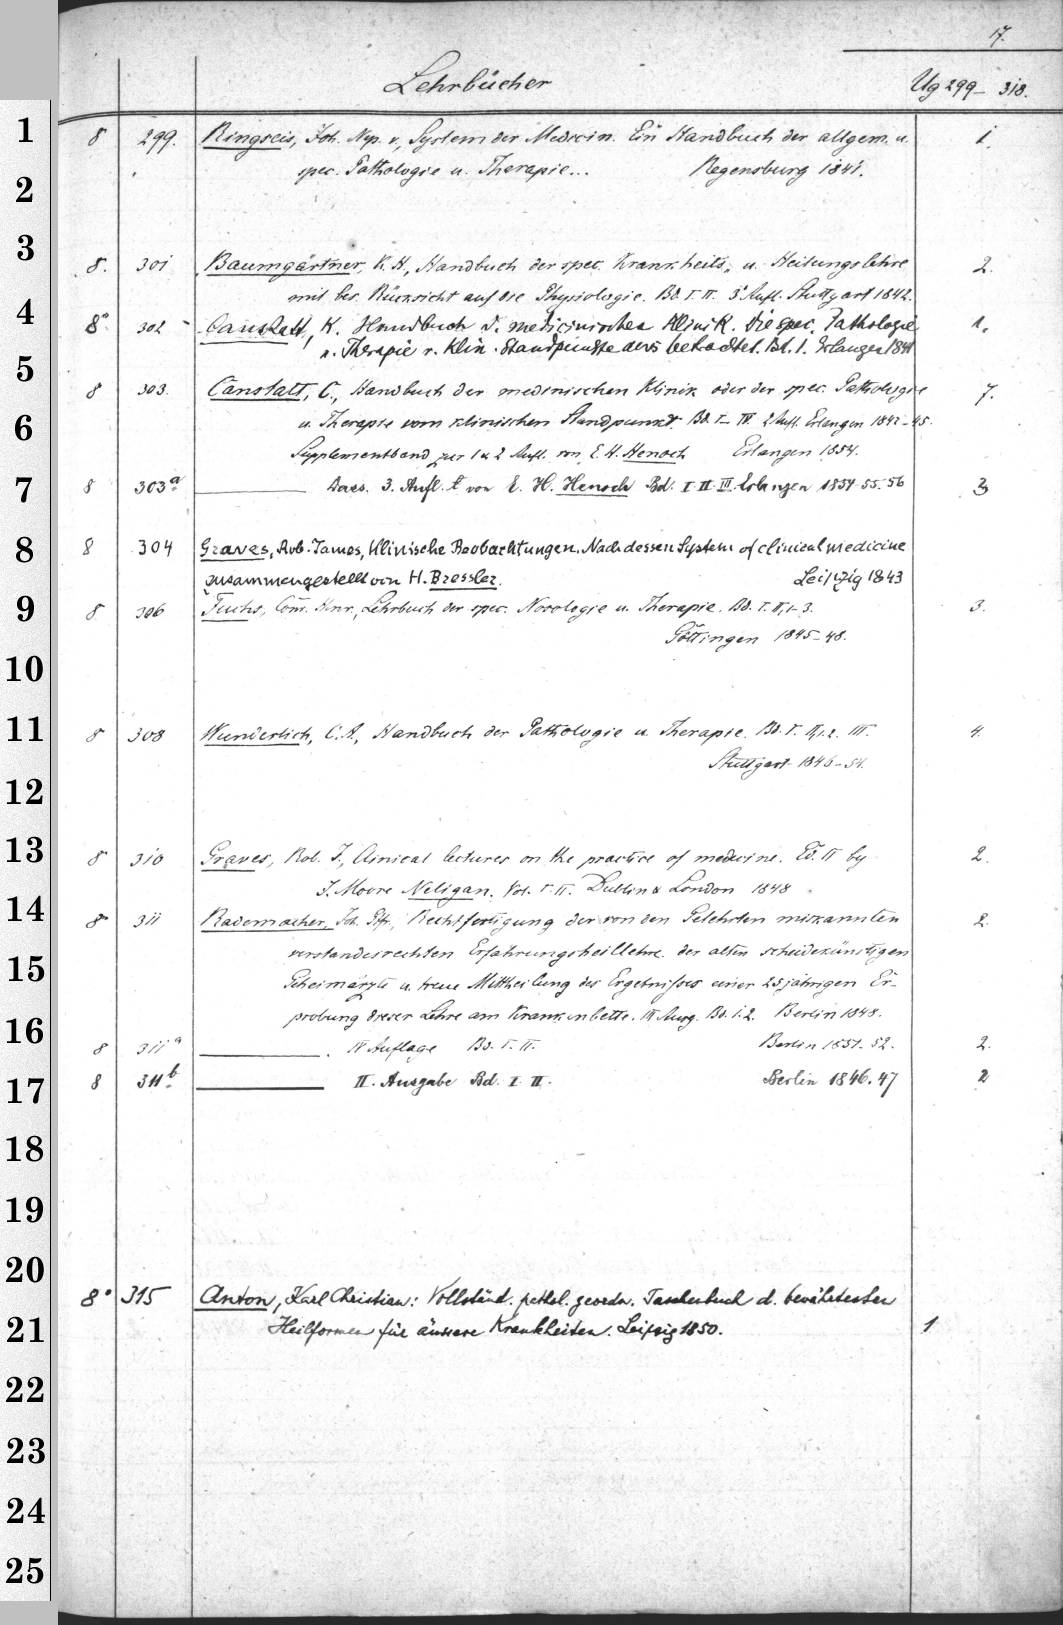 17.
Lehrbücher Ug 299 – 318.
1 8 299. Ringseis, Joh. Nep. v., System der Medicin. Ein Handbuch der allgem. u. 1.
2 spec. Pathologie u. Therapie... Regensburg 1841.
3 8. 301 Baumgärtner, K. H., Handbuch der spec. Krankheits- u. Heilungslehre 2.
mit bes. Rücksicht auf die Physiologie. Bd. I. II. 3. Aufl. Stuttgart 1842.
4 8° 302 - Canstatt, K. Handbuch d. medicinischen Klinik. Die spec. Pathologie 1.
5 u. Therapie v. klin. Standpunkte aus betrachtet. Bd. 1. Erlangen 1841
8 303. Canstatt, C., Handbuch der medinischen Klinik oder der spec. Pathologie 7.
6 u. Therapie vom klinischen Standpunkt. Bd. I – IV. 2 Aufl. Erlangen 1842 – 45.
Supplementband zur 1 & 2 Aufl. von E. H. Henoch Erlangen 1854.
7 8 303a Dass. 3. Aufl. von E. H. Henoch Bd. I II III. Erlangen 1854-55-56 3
8 8 304 Graves, Rob. James, Klinische Beobachtungen. Nach dessen System of clinical medicine
zusammengestellt von H. Bressler. Leipzig 1843
9 8 306 Fuchs, Conr. Hnr., Lehrbuch der spec. Nosologie u. Therapie. Bd. I. II, 1-3. 3.
Göttingen 1845 – 48.
10
11 8 308 Wunderlich, C. A., Handbuch der Pathologie u. Therapie. Bd. I. II, 1.2. III. 4.
Stuttgart 1846 – 54.
12
13 8 310 Graves, Rob. J., Clinical lectures on the practice of medicine. Ed. II by 2.
J. Moore Neligan. Vol. I. II. Dublin & London 1848
14 8 311 Rademacher, Joh. Gfr., Rechtfertigung der von den Gelehrten misskannten 2.
15 verstandesrechten Erfahrungsheillehre der alten scheidekünstigen
Geheimärzte u. treue Mittheilung des Ergebnisses einer 25jährigen Er-
16 probung dieser Lehre am Krankenbette. III Ausg. Bd. 1.2. Berlin 1848.
8 311a . IV Auflage Bd. I. II. Berlin 1851-52. 2.
17 8 311b II. Ausgabe Bd. I. II. Berlin 1846. 47 2
18
19
20 8° 315 Anton, Karl Christian: Vollständ. pathol. geordn. Taschenbuch d. bewährtesten
21 Heilformen für äussere Krankheiten. Leipzig 1850. 1
22
23
24
25